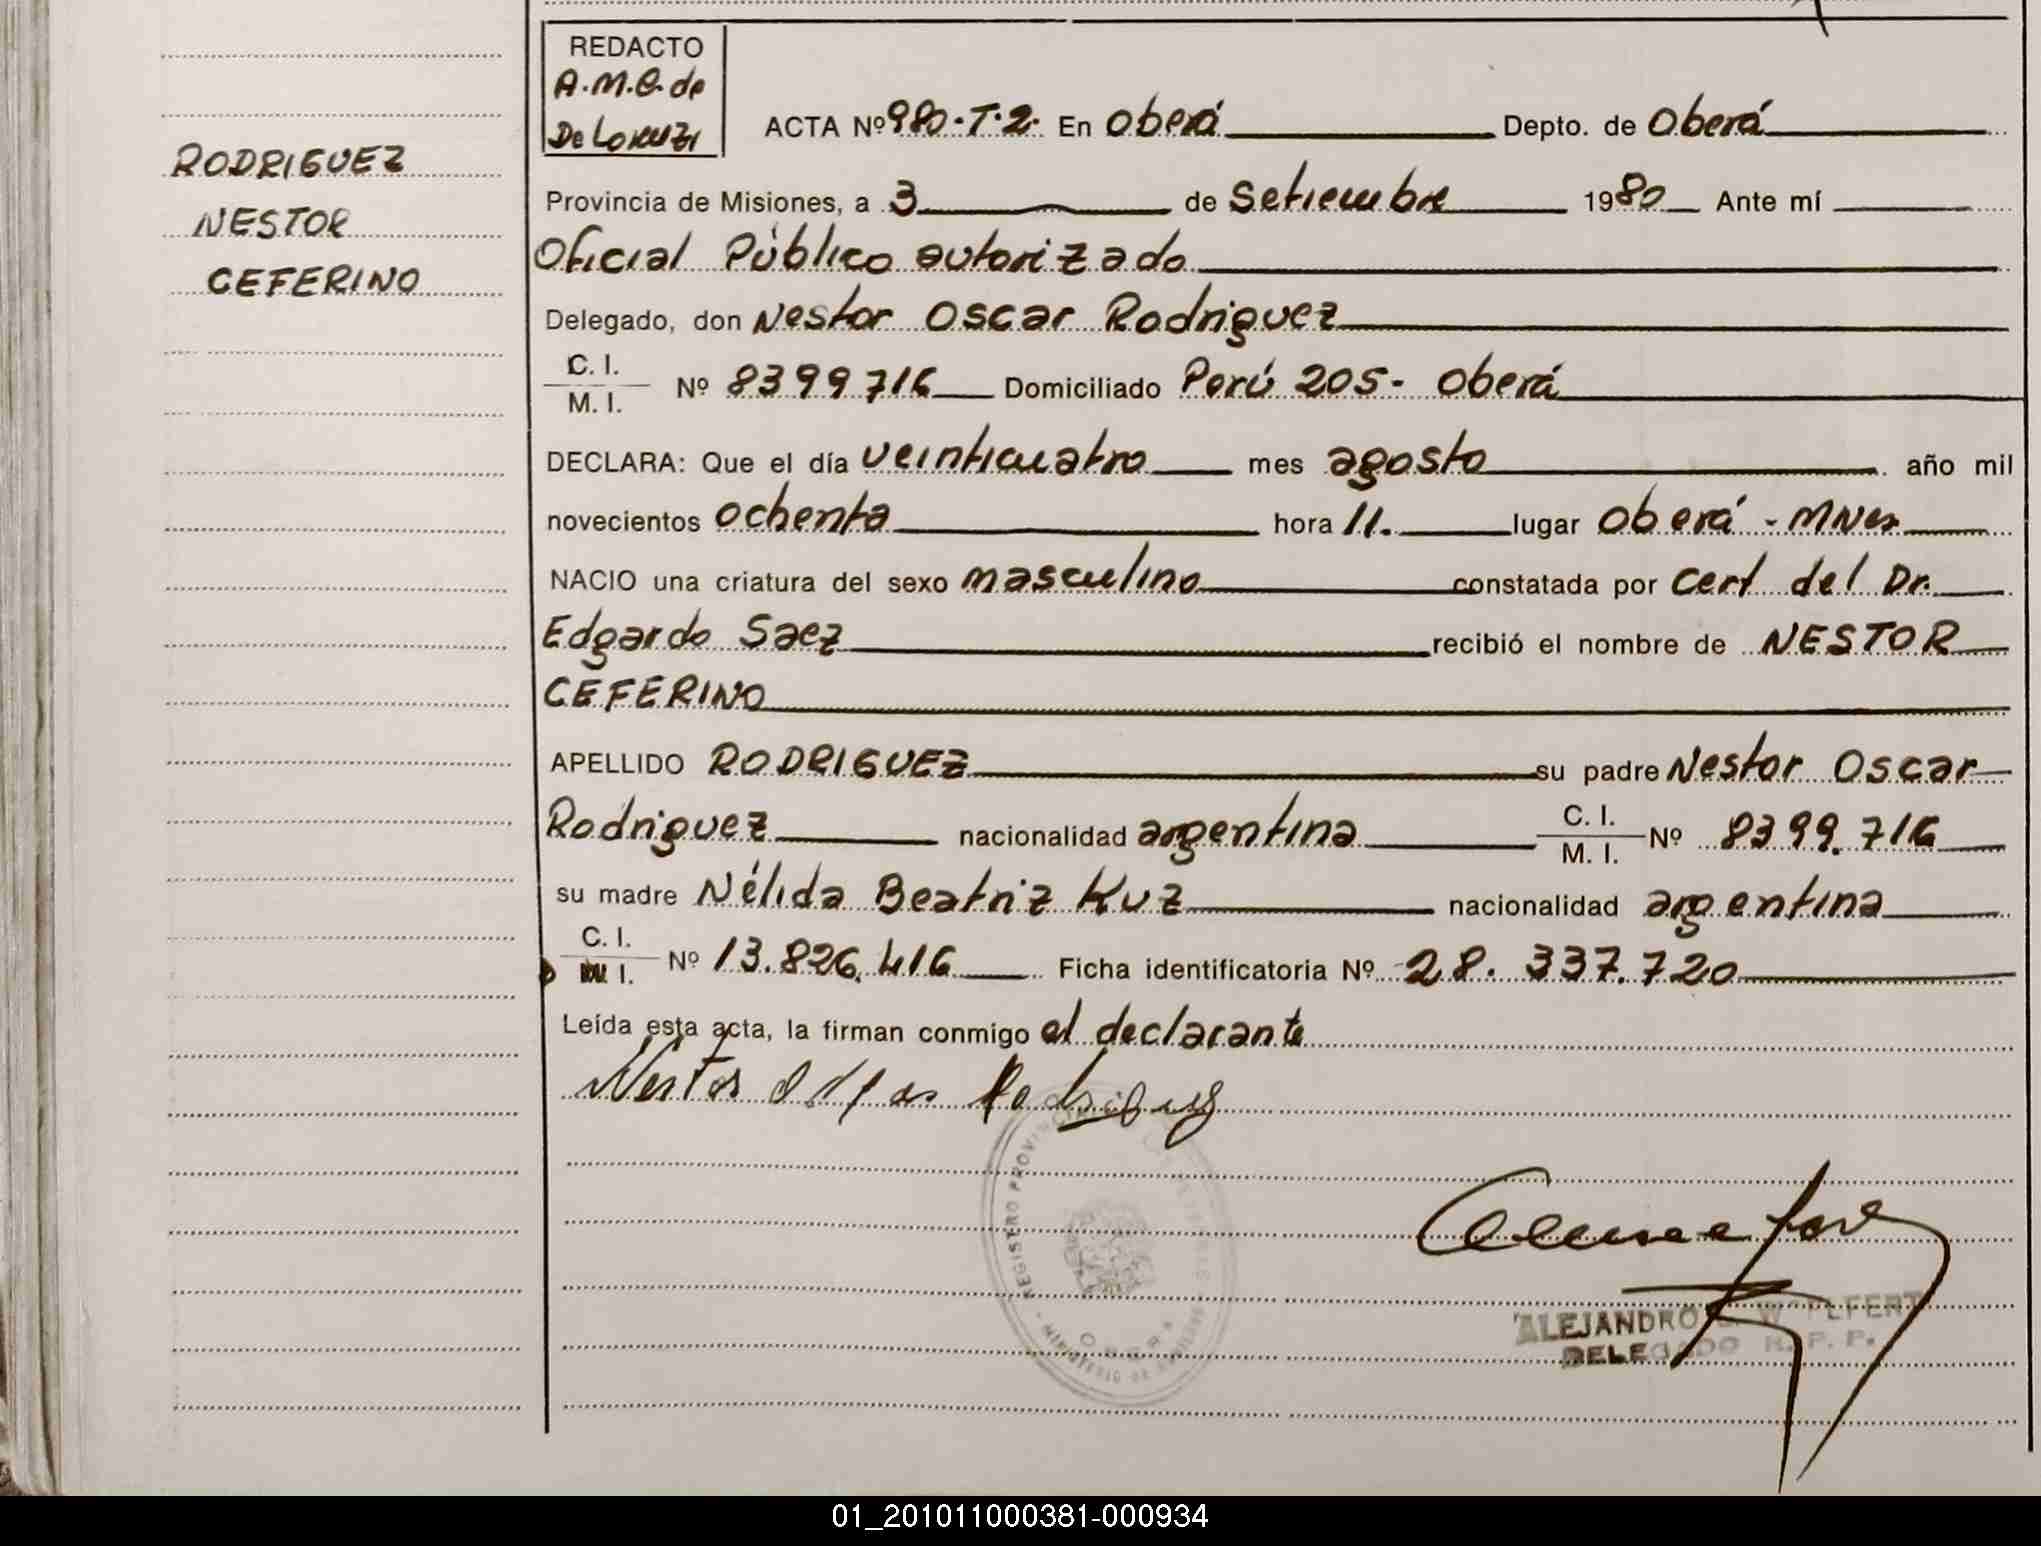 REDACTO
A.M.C. de
De Lorenzi
RODRIGUEZ
NESTOR
CEFERINO
ACTA Nº 980-T-2- En Oberá Depto. de Oberá
Provincia de Misiones, a 3 de Setiembre 1980 Ante mí
Oficial Público autorizado
Delegado, don Nestor Oscar Rodriguez
C. I.
M. I.
Nº 8399716 Domiciliado Perú 205- Oberá
DECLARA: Que el día veinticuatro mes agosto año mil
novecientos ochenta hora 11. lugar Oberá - Mnes
NACIO una criatura del sexo masculino constatada por Cert del Dr.
Edgardo Saez recibió el nombre de NESTOR
CEFERINO
APELLIDO RODRIGUEZ su padre Nestor Oscar
Rodriguez nacionalidad argentina C. I. / M. I. Nº 8399.716
su madre Nélida Beatriz Kuz nacionalidad argentina
C. I.
D I.
Nº 13.826.416 Ficha identificatoria Nº 28.337.720
Leída esta acta, la firman conmigo el declarante
Nestor Rodriguez
REGISTRO PROVINCIAL
OBERA
MINISTERIO DE GOBIERNO
ALEJANDRO
DELEGADO R. P. P.
01_201011000381-000934